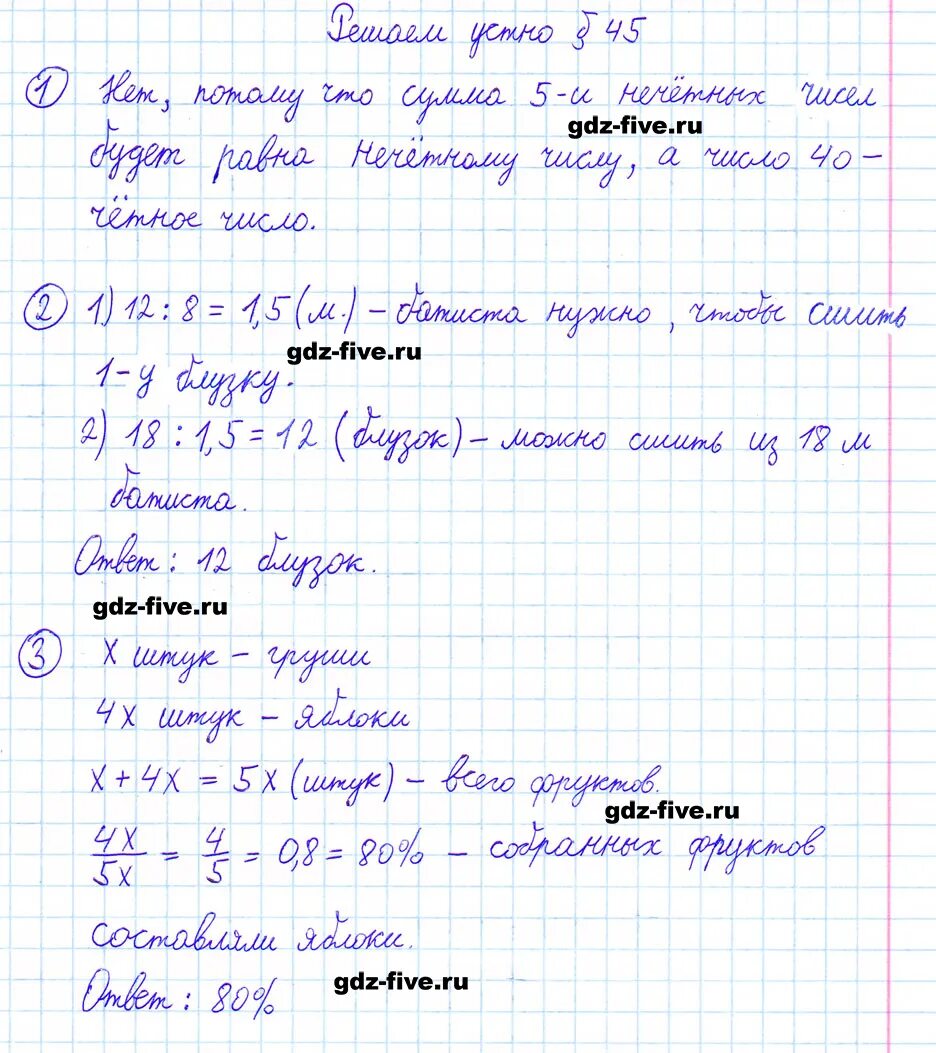 Решаем устно § 45
1 Нет, потому что сумма 5-и нечётных чисел
gdz-five.ru
будет равна нечётному числу, а число 40 –
чётное число.
2 1) 12 : 8 = 1,5 (м.) – батиста нужно, чтобы сшить
gdz-five.ru
1-у блузку.
2) 18 : 1,5 = 12 (блузок) – можно сшить из 18 м
батиста.
Ответ: 12 блузок.
gdz-five.ru
3 x штук – груши
4x штук – яблоки
x + 4x = 5x (штук) – всего фруктов.
gdz-five.ru
4x/5x = 4/5 = 0,8 = 80% – собранных фруктов
составляли яблоки.
gdz-five.ru
Ответ: 80%